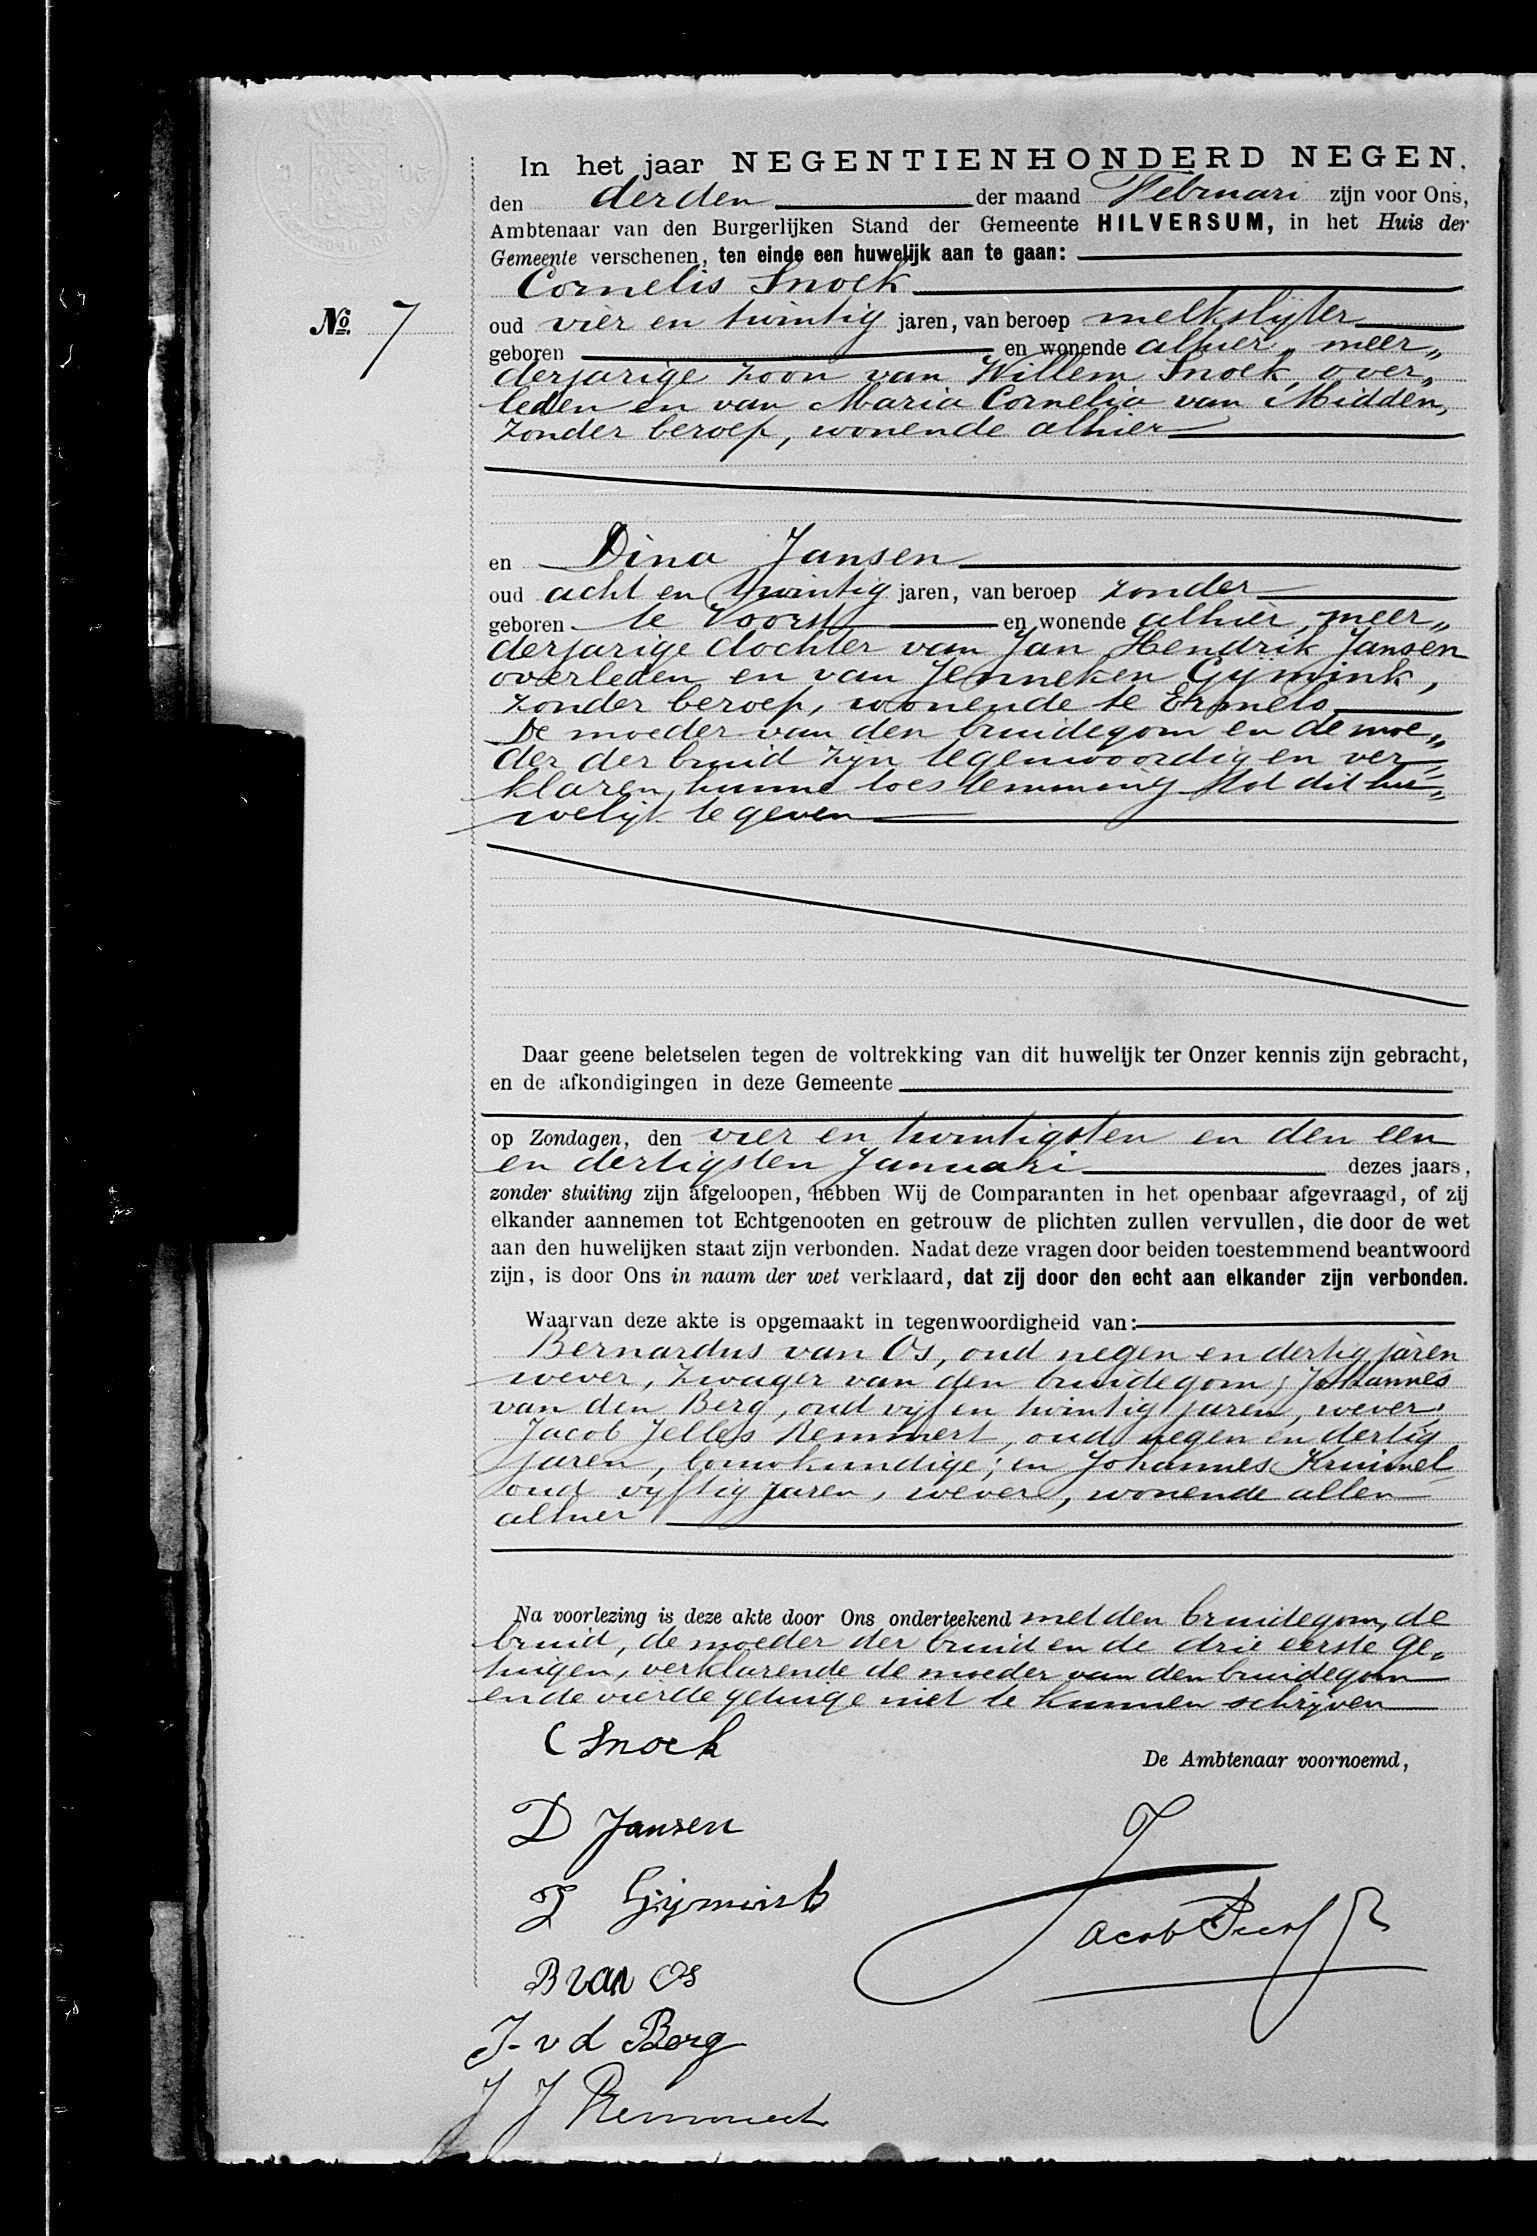 In het jaar NEGENTIENHONDERD NEGEN.
den derden der maand Februari zijn voor Ons,
Ambtenaar van den Burgerlijken Stand der Gemeente HILVERSUM, in het Huis der
Gemeente verschenen, ten einde een huwelijk aan te gaan:
Cornelis Snoek
No. 7
oud vier en twintig jaren, van beroep melkslijter
geboren en wonende alhier, meer„
derjarige zoon van Willem Snoek, over„
leden en van Maria Cornelia van Midden,
zonder beroep, wonende alhier
en Dina Jansen
oud acht en twintig jaren, van beroep zonder
geboren te Voorst en wonende alhier, meer„
derjarige dochter van Jan Hendrik Jansen
overleden en van Jenneken Gijmink,
zonder beroep, wonende te Ermelo
De moeder van den bruidegom en de moe„
der der bruid zijn tegenwoordig en ver„
klaren hunne toestemming tot dit hu„
welijk te geven
Daar geene beletselen tegen de voltrekking van dit huwelijk ter Onzer kennis zijn gebracht,
en de afkondigingen in deze Gemeente
op Zondagen, den vier en twintigsten en den een
en dertigsten Januari dezes jaars,
zonder stuiting zijn afgeloopen, hebben Wij de Comparanten in het openbaar afgevraagd, of zij
elkander aannemen tot Echtgenooten en getrouw de plichten zullen vervullen, die door de wet
aan den huwelijken staat zijn verbonden. Nadat deze vragen door beiden toestemmend beantwoord
zijn, is door Ons in naam der wet verklaard, dat zij door den echt aan elkander zijn verbonden.
Waarvan deze akte is opgemaakt in tegenwoordigheid van:
Bernardus van Os, oud negen en dertig jaren
wever, zwager van den bruidegom; Johannes
van den Berg, oud vijf en twintig jaren, wever;
Jacob Jelles Remmert, oud negen en dertig
jaren, bouwkundige; en Johannes Kruimel
oud vijftig jaren, wever, wonende allen
alhier
Na voorlezing is deze akte door Ons onderteekend met den bruidegom, de
bruid, de moeder der bruid en de drie eerste ge„
tuigen, verklarende de moeder van den bruidegom
en de vierde getuige niet te kunnen schrijven
C Snoek
De Ambtenaar voornoemd,
D Jansen
J Gijmink
Jacob
B van Os
J. v d Berg
J J Remmert